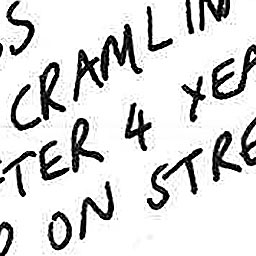 SS
CRAMLIN
TER 4 YEA
ON STRE